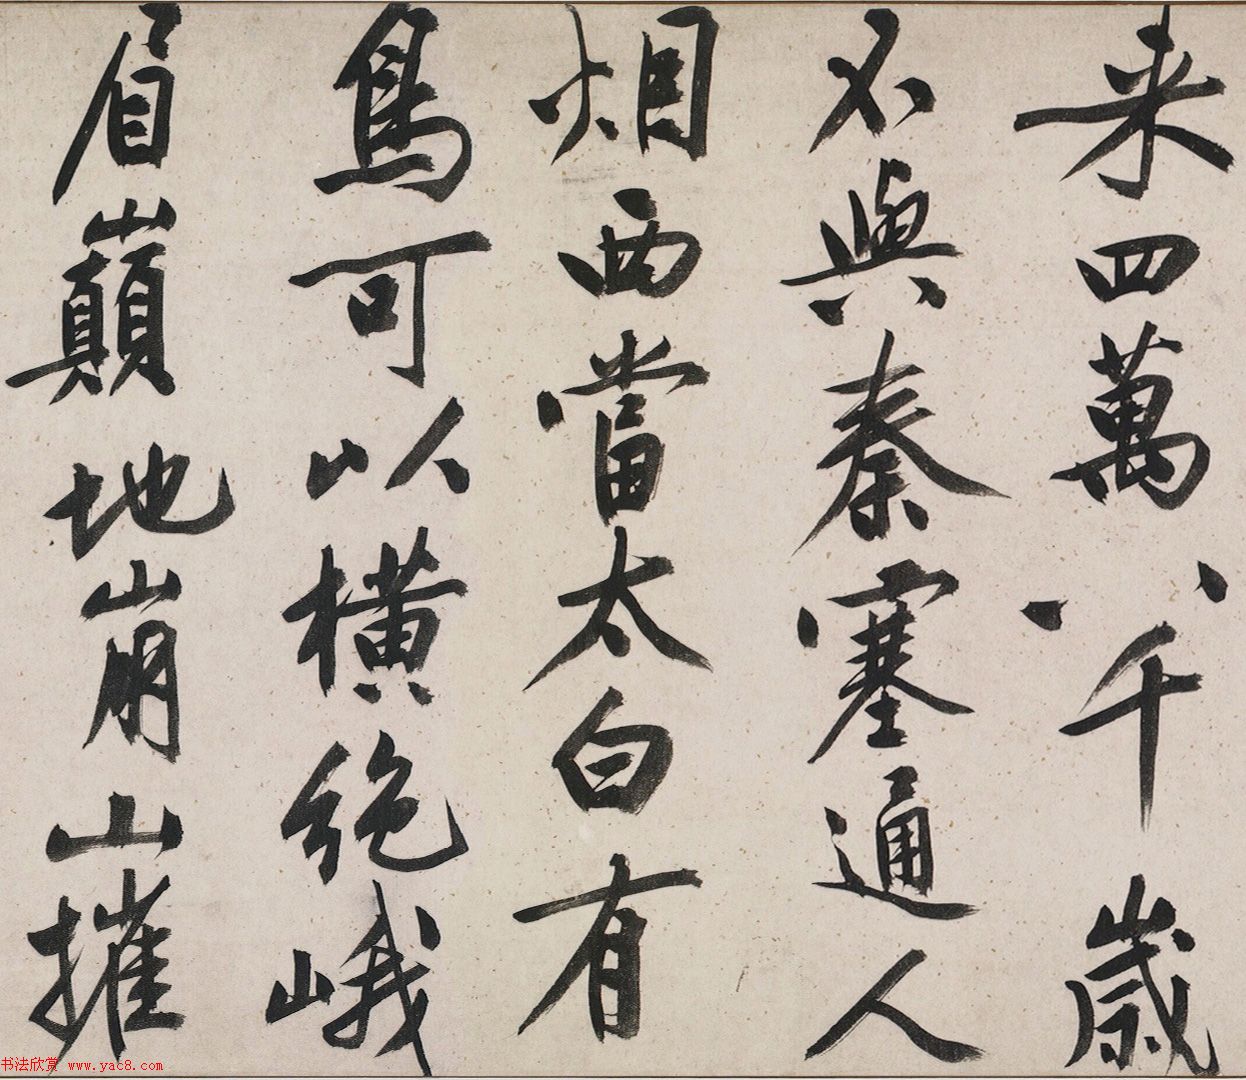 来四萬八千歲
不與秦塞通人
烟西當太白有
鳥可以橫絕峨
眉巔地崩山摧
书法欣赏 www.yac8.com